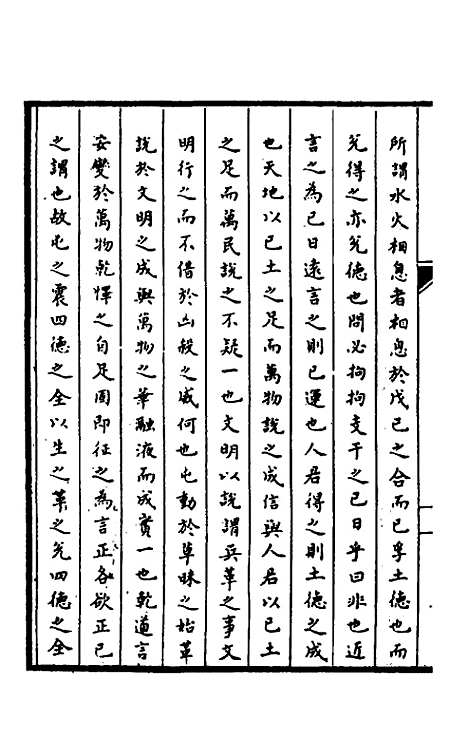 所謂水火相息者相息於戊己之合而已孚土德也而
兌得之亦兌德也問必拘拘支干之己日乎曰非也近
言之為己日遠言之則已運也人君得之則土德之成
也天地以己土之足而萬物說之成信與人君以己土
之足而萬民說之不疑一也文明以說謂兵革之事文
明行之而不借於凶殺之威何也屯動於草昧之始革
說於文明之成與萬物之華融液而成實一也乾道言
安變於萬物乾懌之自足圓即征之為言正各欲正己
之謂也故屯之震四德之全以生之革之兌四德之全